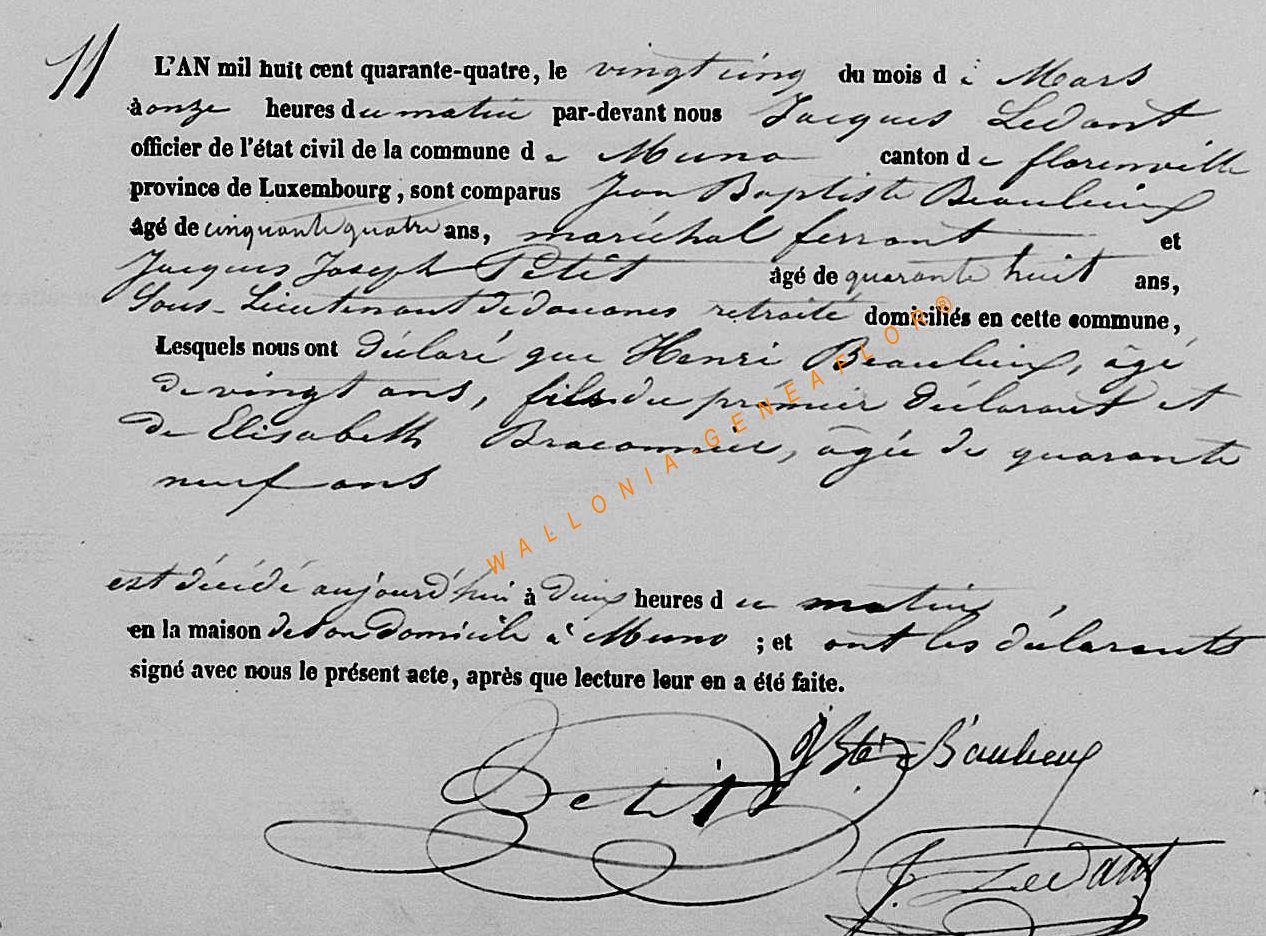 11
L'AN mil huit cent quarante-quatre, le vingt cinq du mois de Mars
à onze heures du matin par-devant nous Jacques Ledant
officier de l'état civil de la commune de Muno canton de florenville
province de Luxembourg, sont comparus Jean Baptiste Beaulieux
âgé de cinquante quatre ans, maréchal ferrant et
Jacques Joseph Petit âgé de quarante huit ans,
Sous-Lieutenant de douanes retraité domiciliés en cette commune,
Lesquels nous ont déclaré que Henri Beaulieux, âgé
de vingt ans, fils du prémier déclarant et
de Elisabeth Braconnier, âgée de quarante
neuf ans
est décédé aujourd'hui à deux heures du matin,
en la maison de son domicile à Muno ; et ont les déclarants
signé avec nous le présent acte, après que lecture leur en a été faite.
JBte Beaulieux
Petit
J. Ledant
WALLONIA-GENEAFLOR®